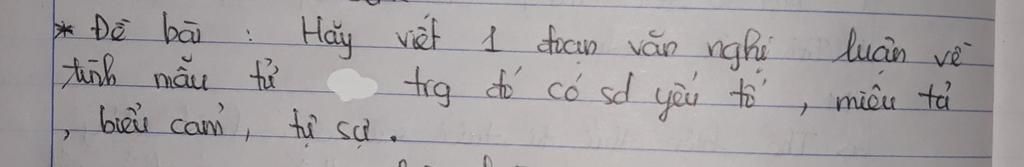 * Đề bài : Hãy viết 1 đoạn văn nghị luận về
tình mẫu tử trg đó có sd yếu tố , miêu tả
, biểu cảm, tự sự.